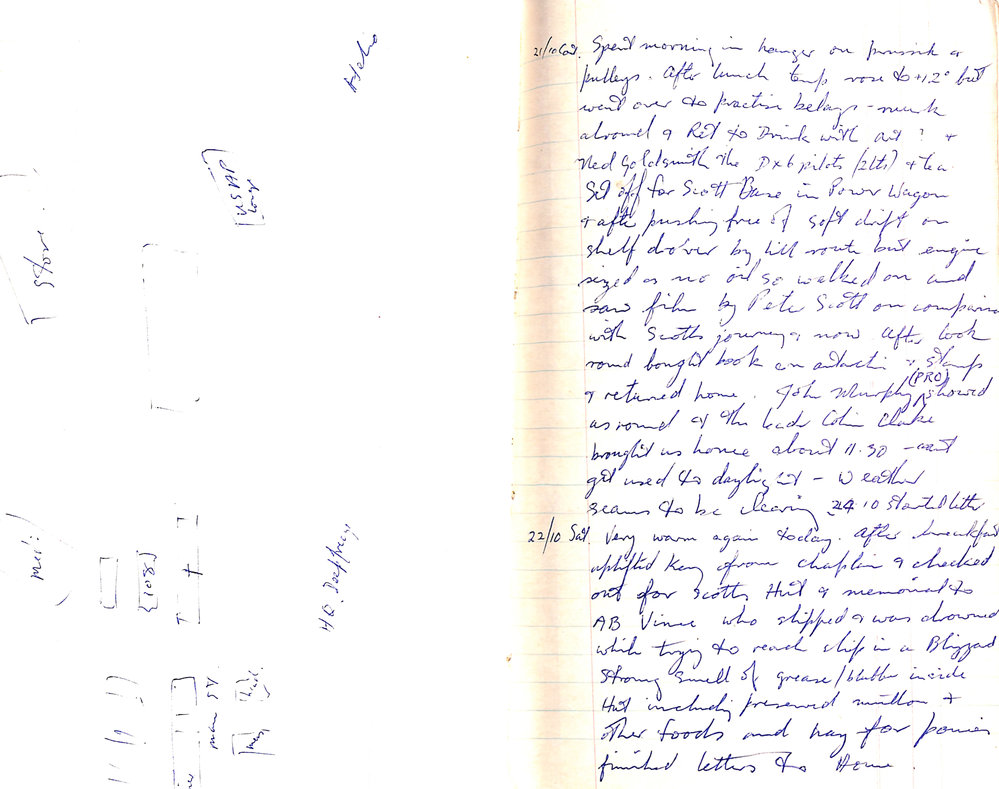 Helo
Store
USARP
mess!
108
HQ Deepfreeze
main St
21/10 Sat. Spent morning in hanger on prussik &
pulleys. After lunch temp rose to +12° but
went over to practise belays - muck
around & Ret to Drink with &
Ned Goldsmith the Dx6 pilots (2lts) & tea
Set off for Scott Base in Power Wagon
& after pushing free of soft drift on
shelf by hill route but engine
sized as no oil so walked on and
saw film by Pete Scott on comparison
with Scotts journey & now After look
round bought book on antarctic & stamps
& returned home. John Murphy (PRO) showed
us round & the leader Colin Clarke
brought us home about 11.30 - cant
get used to daylight - Weather
seems to be clearing 24.10 started letter
22/10 Sat. Very warm again today. After breakfast
uplifted Key from chaplin & checked
out for Scotts Hut & memorial to
AB Vince who slipped & was drowned
while trying to reach ship in a Blizzard
Strong smell of grease/blubber inside
Hut including preserved mutton &
other foods and hay for ponies
finished letters to Home.